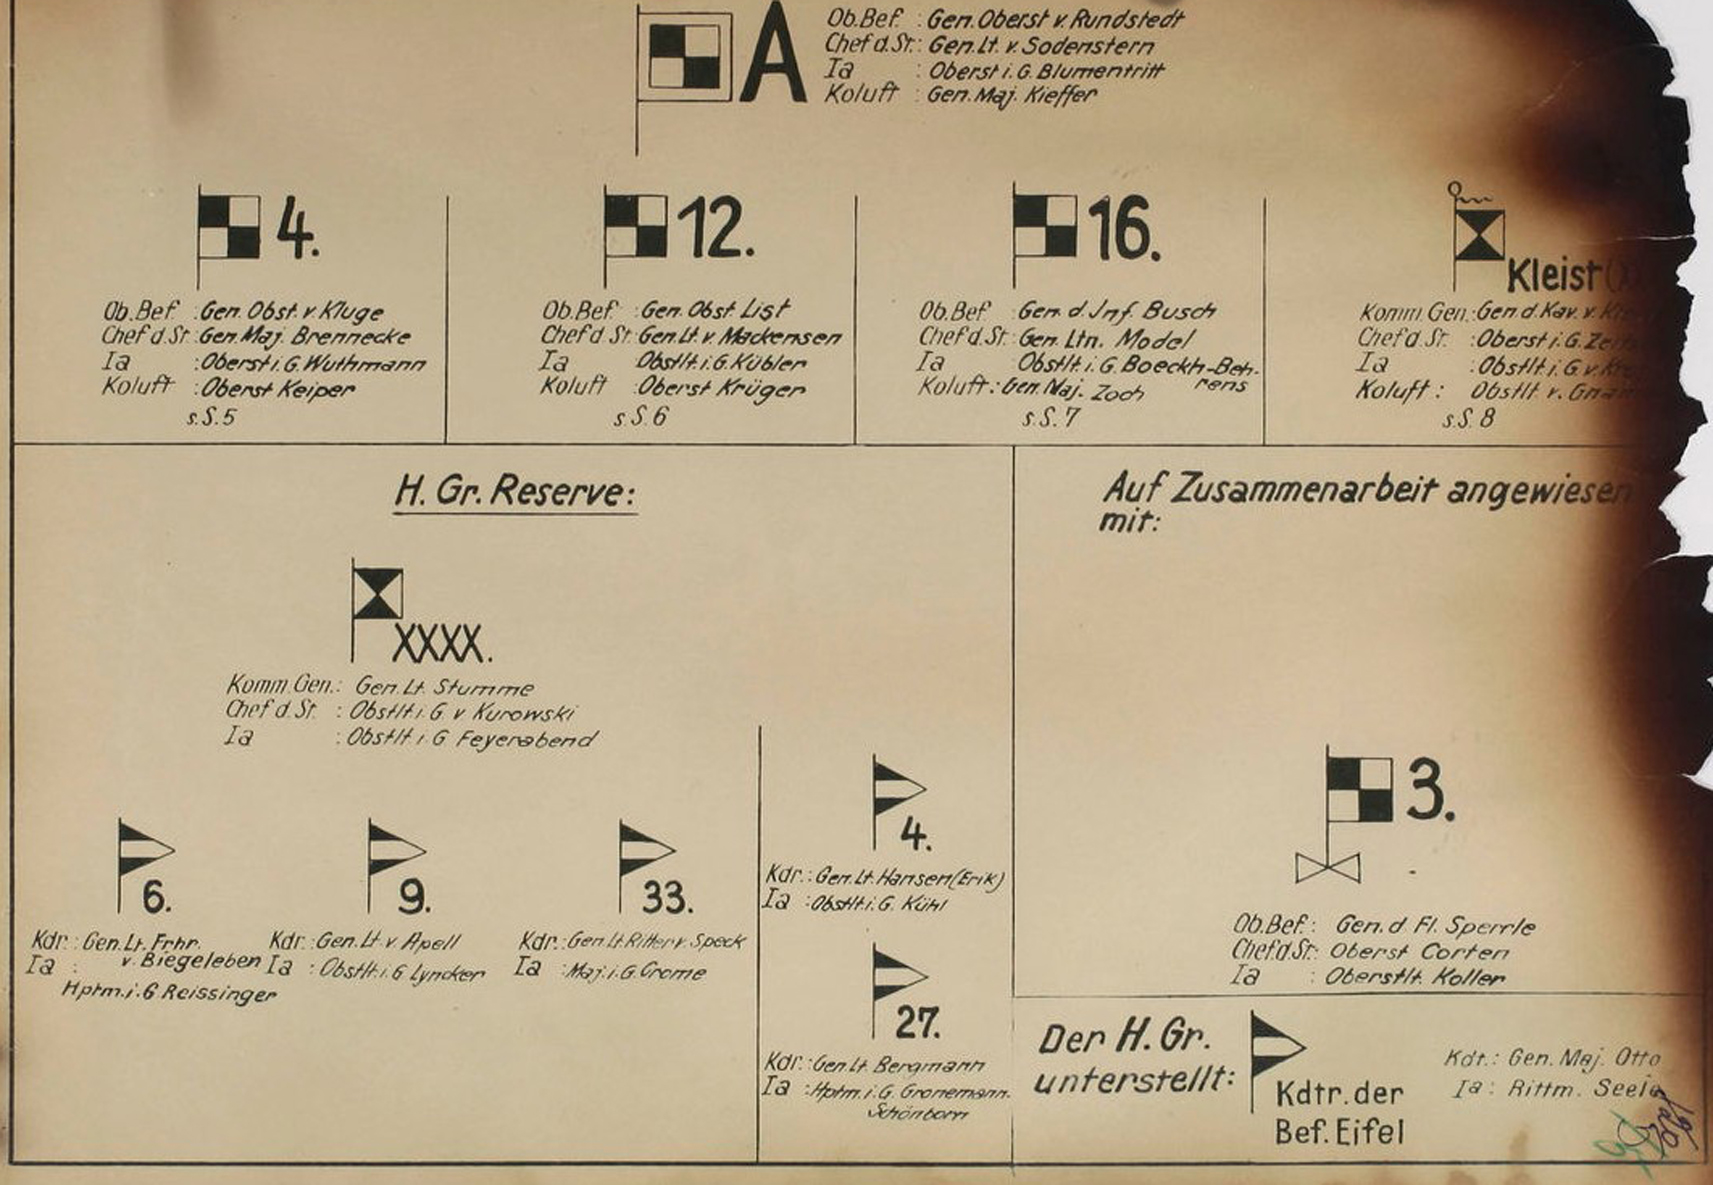 A
Ob.Bef. : Gen.Oberst v. Rundstedt
Chef d. St.: Gen.Lt. v. Sodenstern
Ia : Oberst i. G. Blumentritt
Koluft : Gen. Maj. Kieffer
4.
Ob.Bef. : Gen. Obst. v. Kluge
Chef d. St: Gen. Maj. Brennecke
Ia : Oberst i. G. Wuthmann
Koluft : Oberst Keiper
s. S. 5
12.
Ob.Bef. : Gen. Obst. List
Chef d. St: Gen. Lt. v. Mackensen
Ia Obstlt. i. G. Kübler
Koluft : Oberst Krüger
s. S. 6
16.
Ob.Bef : Gen. d. Jnf. Busch
Chef d. St: Gen. Ltn. Model
Ia Obstlt. i. G. Boeckh-Beh-
rens
Koluft.: Gen. Maj. Zoch
s. S. 7
Kleist
Komm. Gen.: Gen. d. Kav. v.
Chef d. St. : Oberst i. G.
Ia : Obstlt. i. G. v.
Koluft : Obstlt. v.
s. S. 8
H. Gr. Reserve:
XXXX.
Komm. Gen.: Gen. Lt. Stumme
Chef d. St. : Obstlt. i. G. v Kurowski
Ia : Obstlt i. G Feyerabend
6.
Kdr.: Gen. Lt. Frhr.
v. Biegeleben
Ia :
Hptm. i. G Reissinger
9.
Kdr.: Gen. Lt. v. Apell
Ia : Obstlt. i. G Lyncker
33.
Kdr.: Gen. Lt. Ritter v. Speck
Ia : Maj. i. G. Crome
4.
Kdr.: Gen. Lt. Hansen (Erik)
Ia : Obstlt. i. G. Kühl
27.
Kdr.: Gen. Lt. Bergmann
Ia : Hptm. i. G. Gronemann-
Schönborn
Auf Zusammenarbeit angewiesen
mit:
3.
Ob.Bef.: Gen. d Fl. Sperrle
Chef. d. St: Oberst Corten
Ia : Oberstlt. Koller
Der H. Gr.
unterstellt:
Kdtr. der
Bef. Eifel
Kdt.: Gen. Maj. Otto
Ia: Rittm. Seele